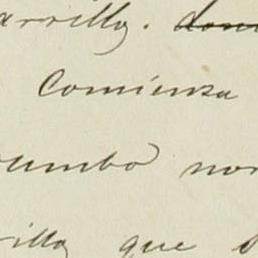 arrillo. don
Comienza
umbo nor
illo que